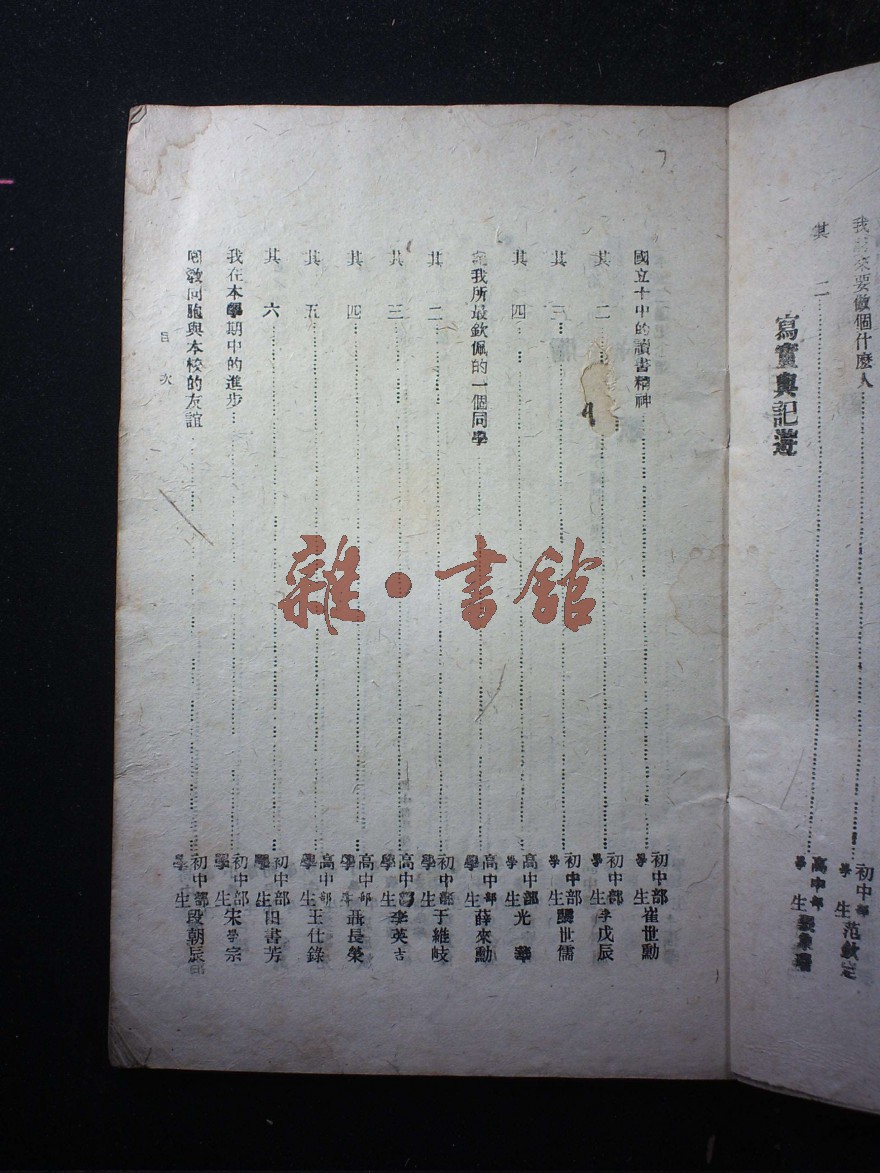 我將來要做個什麼人 初中部學生 范欽定
其二 高中部學生
寫實與記遊
國立十中的讀書精神 初中部學生 崔世勳
其二 初中部學生 李戊辰
其三 初中部學生 世儒
其四 高中部學生 光華
記我所最欽佩的一個同學 高中部學生 薛來勳
其二 初中部學生 于維岐
其三 高中部學生 李英吉
其四 高中部學生 聶長榮
其五 高中部學生 王仕錄
其六 初中部學生 田書芳
我在本學期中的進步 初中部學生 宋學宗
回教同胞與本校的友誼 初中部學生 段朝辰
目次
雜·書館